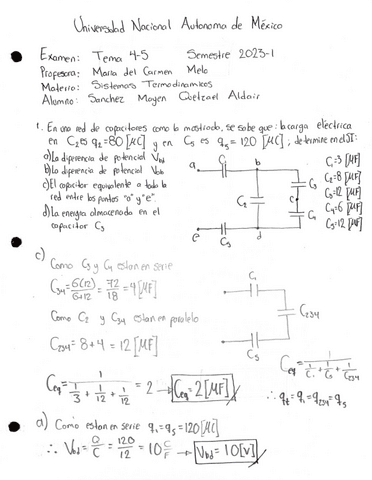 Universidad Nacional Autonoma de México
Examen: Tema 4-5 Semestre 2023-1
Profesora: Maria del Carmen Melo
Materia: Sistemas Termodinamicos
Alumno: Sanchez Moyen Quetzael Aldair
1. En una red de capacitores como la mostrada, se sabe que: la carga eléctrica
en C2 es q2=80[μC] y en C5 es q5=120[μC]; determine en el SI:
a) La diferencia de potencial Vbd
b) La diferencia de potencial Vab
c) El capacitor equivalente a toda la
red entre los puntos "a" y "e".
d) La energia almacenada en el
capacitor C3
a C1 b
C2 C3
c
C4
e C5 d
C1=3[μF]
C2=8[μF]
C3=12[μF]
C4=6[μF]
C5=12[μF]
c)
Como C3 y C4 estan en serie
C34 = 6(12)/6+12 = 72/18 = 4[μF]
Como C2 y C34 estan en paralelo
C234 = 8+4 = 12[μF]
C1
C234
C5
Ceq = 1/(1/3 + 1/12 + 1/12) = 2 → Ceq=2[μF]
Ceq = 1/(1/C1 + 1/C5 + 1/C234)
∴ qt=q1=q234=q5
a) Como estan en serie q1=q5=120[μC]
∴ Vbd = Q/C = 120/12 = 10 C/F → Vbd=10[V]